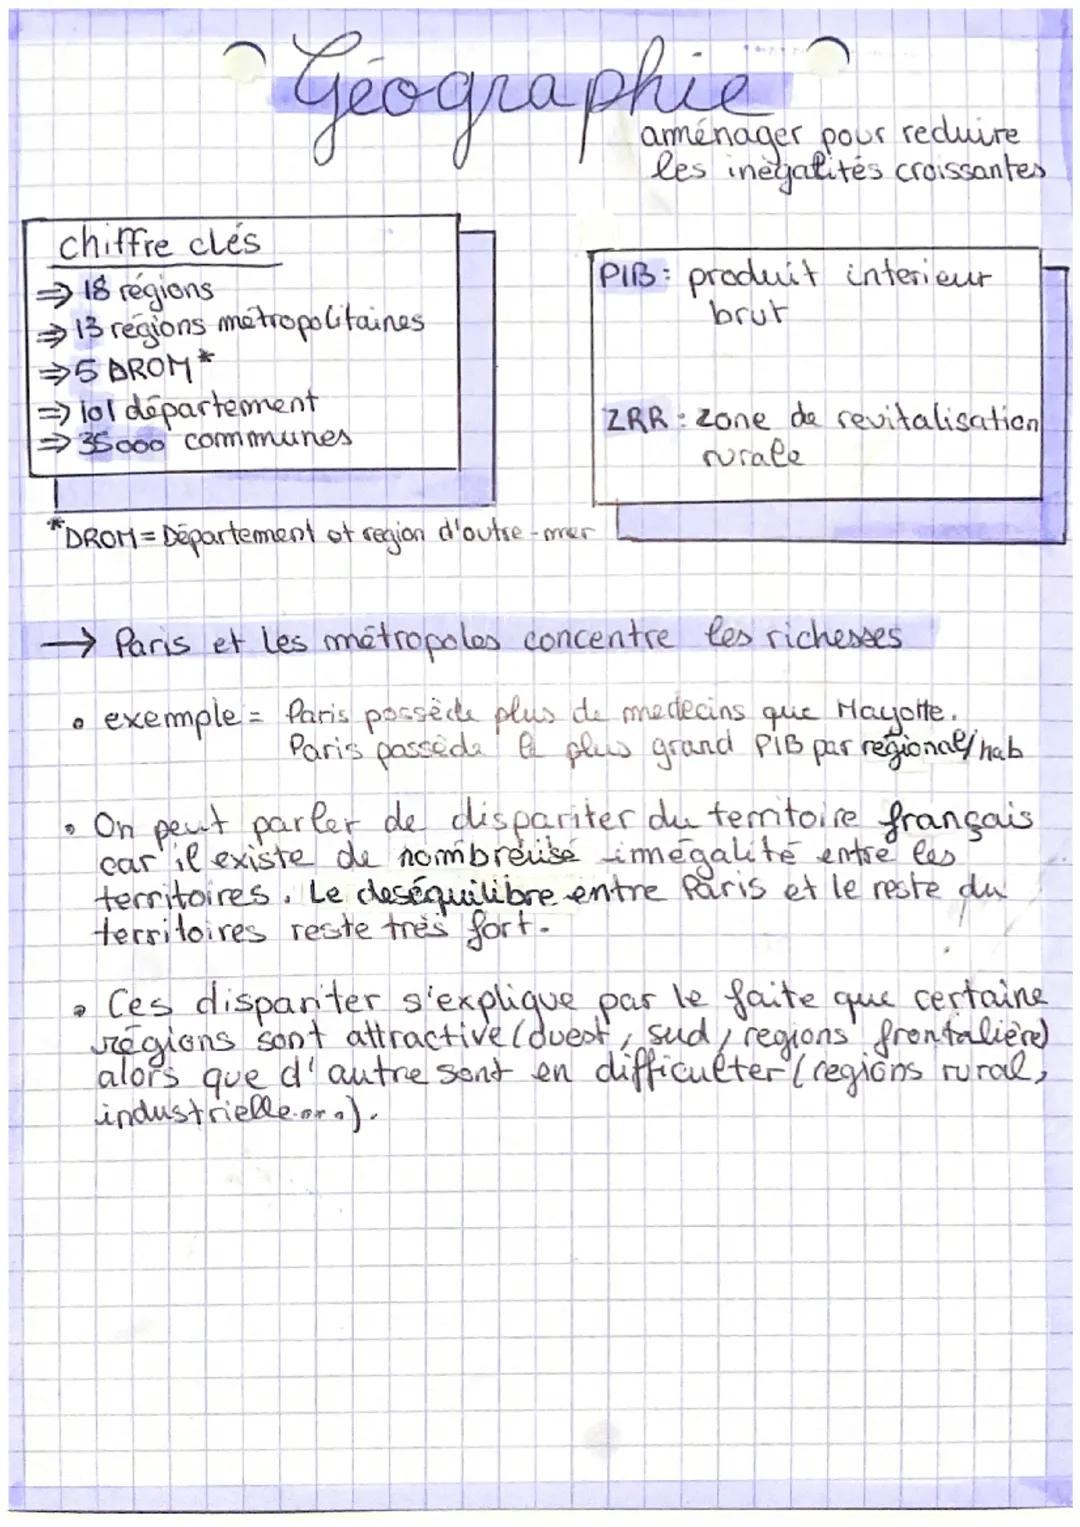 Géographie
aménager pour reduire
les inégalités croissantes
chiffre clés
⇒ 18 régions
⇒ 13 régions métropolitaines
⇒ 5 DROM*
⇒ 101 département
⇒ 35000 communes
PIB : produit interieur
brut
ZRR : zone de revitalisation
rurale
*DROM = Département et region d'outre-mer
→ Paris et les métropoles concentre les richesses
• exemple = Paris possède plus de medecins que Mayotte.
Paris possède le plus grand PIB par régional/hab
• On peut parler de dispariter du territoire français
car il existe de nombreuse innégalité entre les
territoires. Le deséquilibre entre Paris et le reste du
territoires reste très fort.
• Ces dispariter s'explique par le faite que certaine
régions sont attractive (ouest, sud, regions frontalière)
alors que d'autre sont en difficulter (regions rural,
industrielle...).